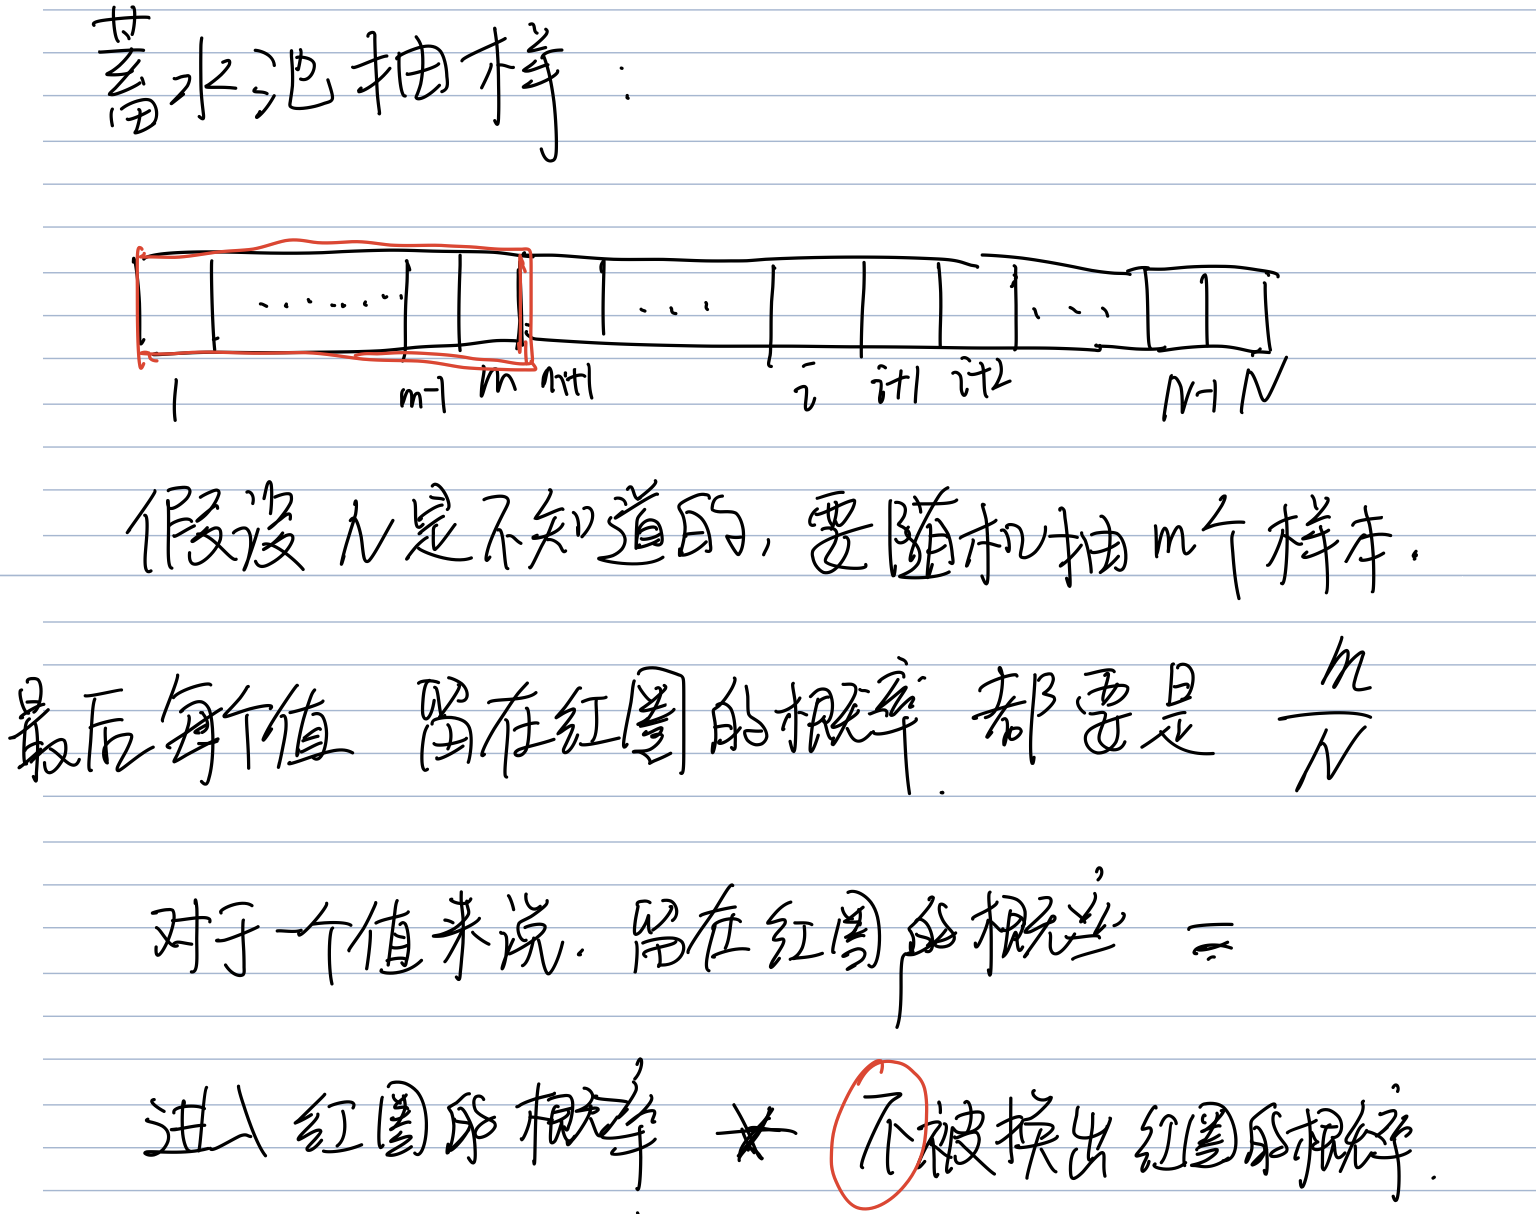 蓄水池抽样：
1 m-1 m m+1 i i+1 i+2 N-1 N
假设N是不知道的，要随机抽m个样本.
最后每个值 留在红圈的概率 都要是 m/N
对于一个值来说. 留在红圈的概率 =
进入红圈的概率 * 不被换出红圈的概率.